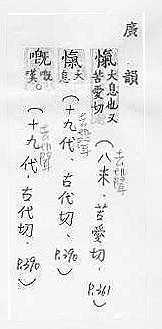 廣韻
愾 大息也又苦愛切 (八未．苦愛切．P.361) 去聲
愾 大息 (十九代．古代切．P.390) 去聲
嘅 嘅嘆。 (十九代．古代切．P.390) 去聲